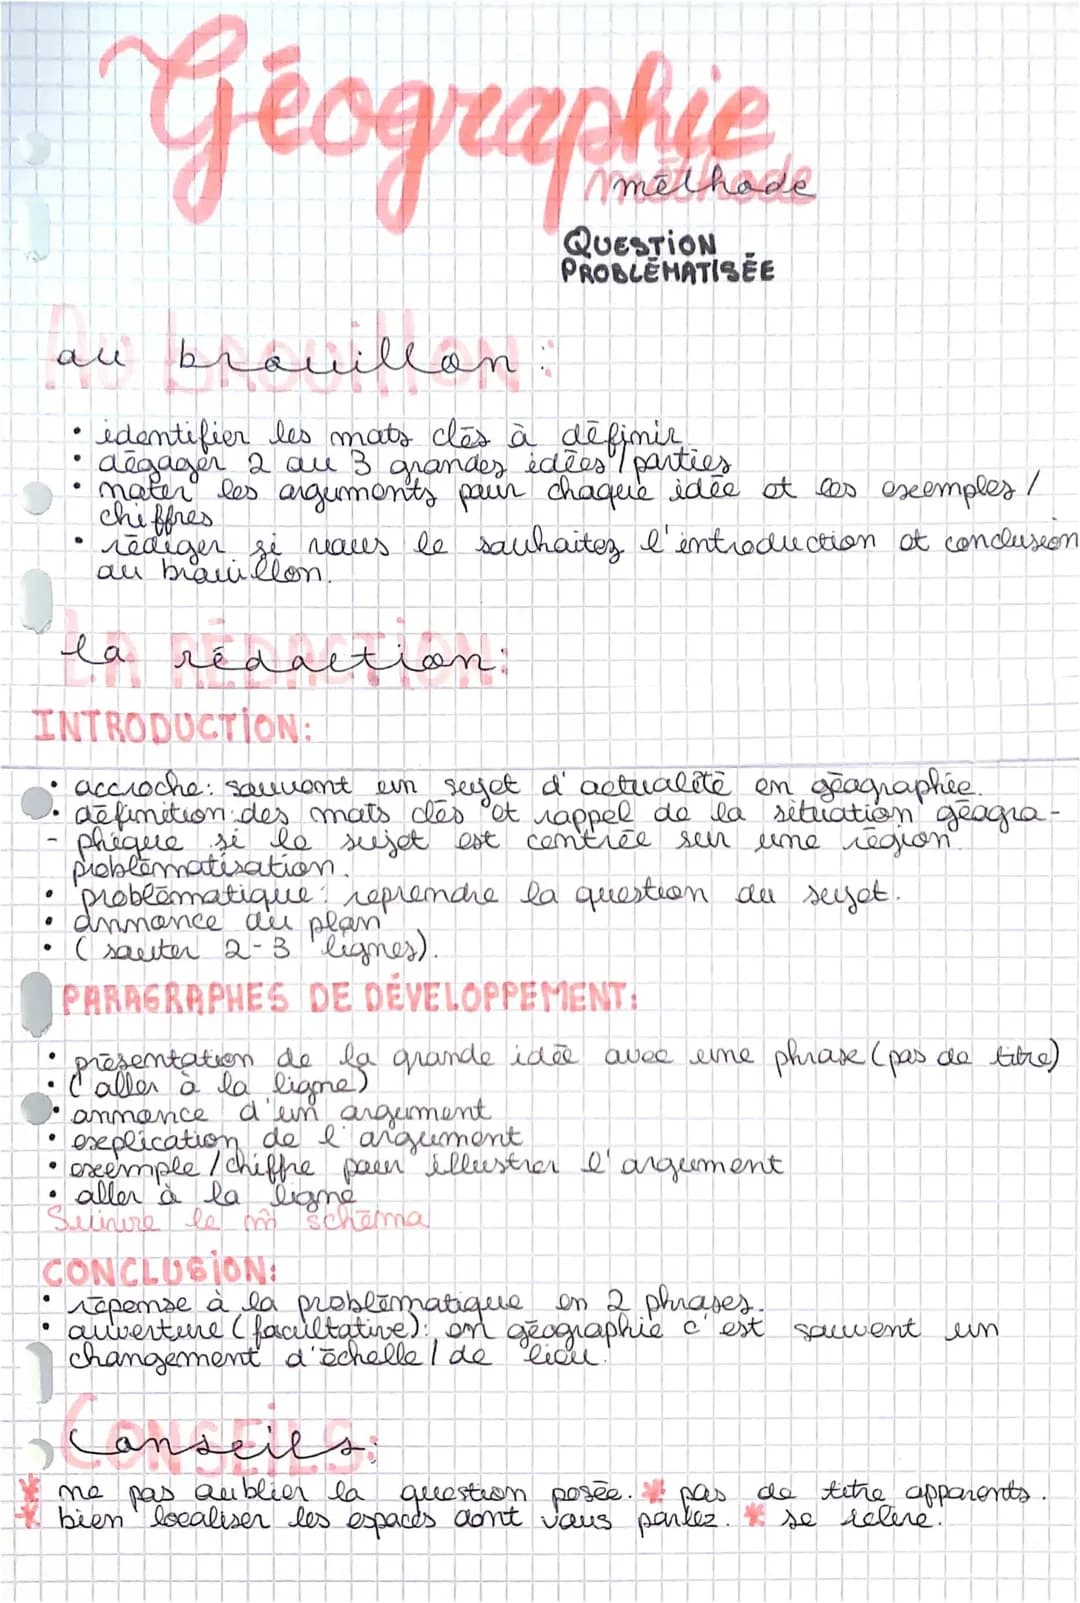 Géographie
méthode
QUESTION
PROBLÉMATISÉE
au brouillon :
• identifier les mots clés à définir
• dégager 2 ou 3 grandes idées / parties
• noter les arguments pour chaque idée et les exemples /
chiffres
• rédiger si vous le souhaitez l'introduction et conclusion
au brouillon.
la rédaction :
INTRODUCTION:
• accroche: souvent un sujet d'actualité en géographie.
• définition: des mots clés et rappel de la situation géogra-
- phique si le sujet est centrée sur une région.
problématisation.
• problématique: reprendre la question du sujet.
• annonce du plan
• ( sauter 2-3 lignes).
PARAGRAPHES DE DÉVELOPPEMENT:
• présentation de la grande idée avec une phrase (pas de titre)
• ( aller à la ligne)
• annonce d'un argument
• explication de l'argument
• exemple / chiffre pour illustrer l'argument
• aller à la ligne
Suivre le m̂ schéma
CONCLUSION:
• réponse à la problématique en 2 phrases.
• ouverture (facultative): en géographie c'est souvent un
changement d'échelle / de lieu.
Conseils:
* ne pas oublier la question posée. * pas de titre apparents.
* bien localiser les espaces dont vous parlez. * se relire.